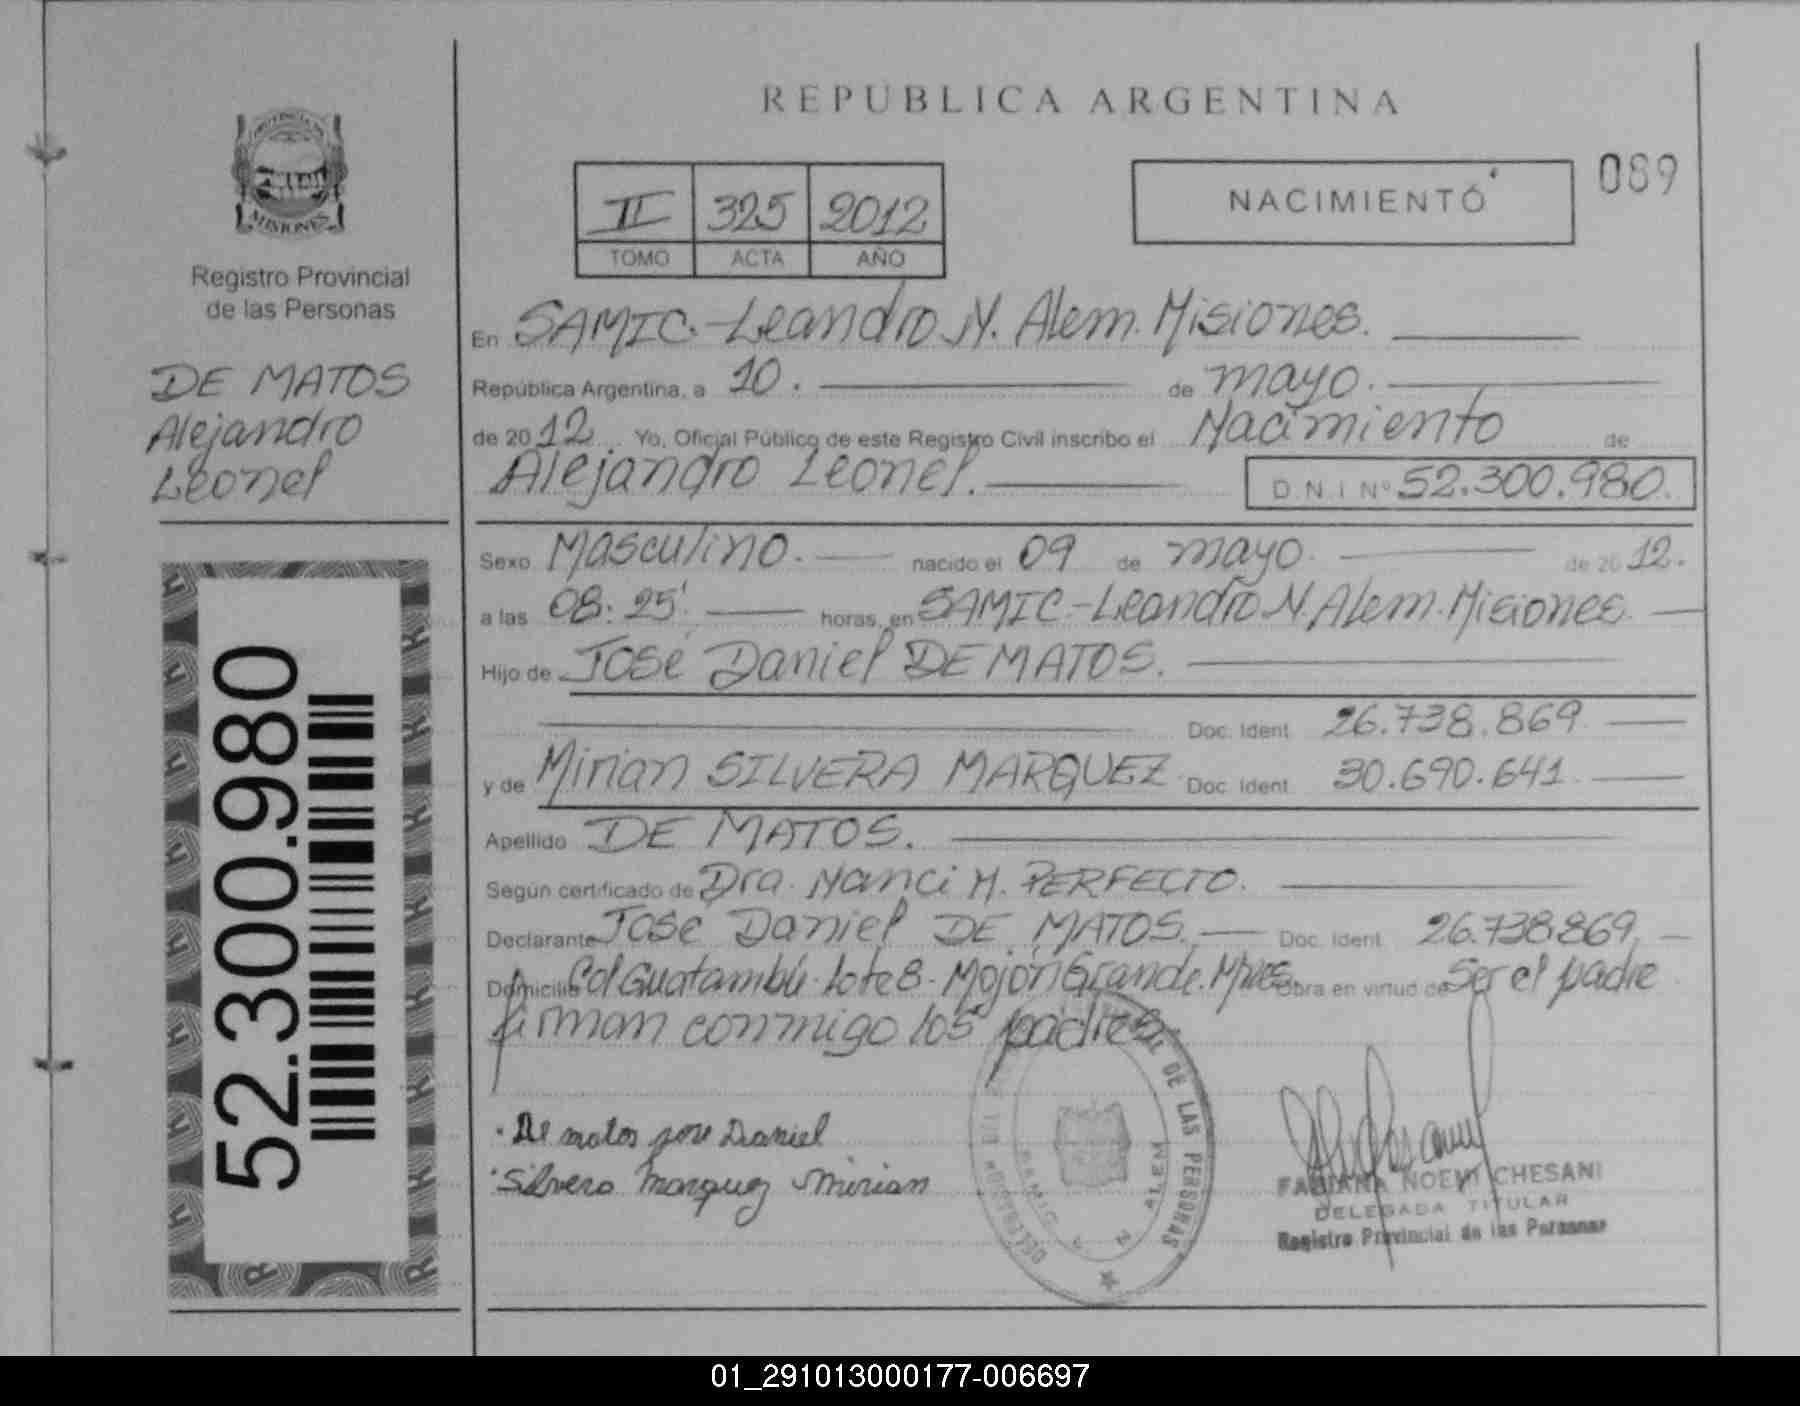 REPUBLICA ARGENTINA
PROVINCIA DE
MISIONES
Registro Provincial
de las Personas
DE MATOS
Alejandro
Leonel
52.300.980
II 325 2012
TOMO ACTA AÑO
NACIMIENTO
089
En SAMIC.-Leandro N. Alem. Misiones.
República Argentina, a 10. de mayo.
de 2012 Yo, Oficial Público de este Registro Civil inscribo el Nacimiento de
Alejandro Leonel. D.N.I Nº 52.300.980.
Sexo Masculino. nacido el 09 de mayo. de 2012.
a las 08:25'. horas, en SAMIC-Leandro N. Alem. Misiones.
Hijo de José Daniel DE MATOS.
Doc. Ident. 26.738.869
y de Mirian SILVERA MARQUEZ. Doc. Ident. 30.690.641
Apellido DE MATOS.
Según certificado de Dra. Nanci M. PERFECTO.
Declarante José Daniel DE MATOS. Doc. Ident. 26.738.869.
Domicilio Col Guatambú. Lote 8. Mojón Grande. Mnes. Obra en virtud de Ser el padre
firman conmigo los padres
De matos jose Daniel
Silvera marquez Mirian
DE LAS PERSONAS
SAMIC
N ALEM
FABIANA NOEMI CHESANI
DELEGADA TITULAR
Registro Provincial de las Personas
01_291013000177-006697